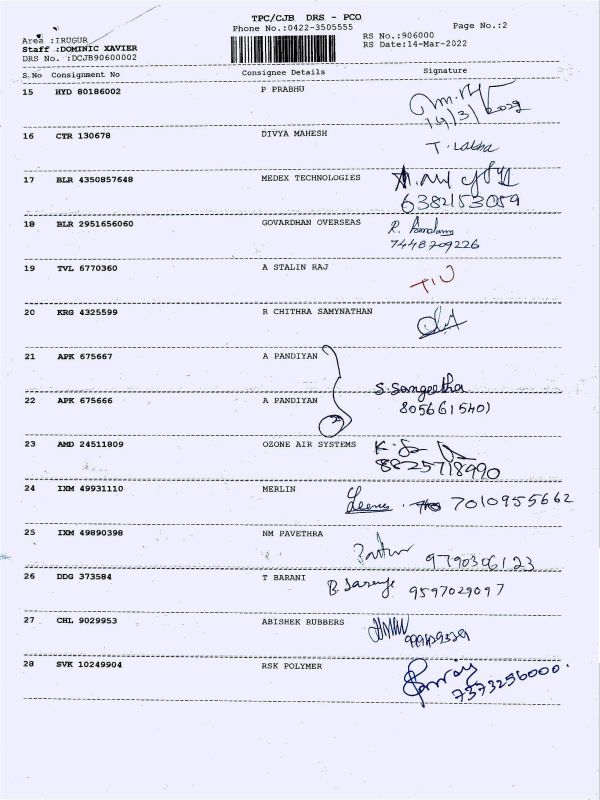 TPC/CJB DRS - PCO
Phone No.:0422-3505555 Page No.:2
Area :IRUGUR RS No.:906000
Staff :DOMINIC XAVIER RS Date:14-Mar-2022
DRS No. :DCJB90600002
S.No Consignment No Consignee Details Signature
15 HYD 80186002 P PRABHU
14/3/2022
16 CTR 130678 DIVYA MAHESH
T. Lakha
17 BLR 4350857648 MEDEX TECHNOLOGIES
6382153059
18 BLR 2951656060 GOVARDHAN OVERSEAS
7448709226
19 TVL 6770360 A STALIN RAJ
20 KRG 4325599 R CHITHRA SAMYNATHAN
21 APK 675667 A PANDIYAN
S. Sangeetha
22 APK 675666 A PANDIYAN 8056615401
23 AMD 24511809 OZONE AIR SYSTEMS
8825718990
24 IXM 49931110 MERLIN
7010955662
25 IXM 49890398 NM PAVETHRA
9790306123
26 DDG 373584 T BARANI
9597029097
27 CHL 9029953 ABISHEK RUBBERS
28 SVK 10249904 RSK POLYMER
7373256000.